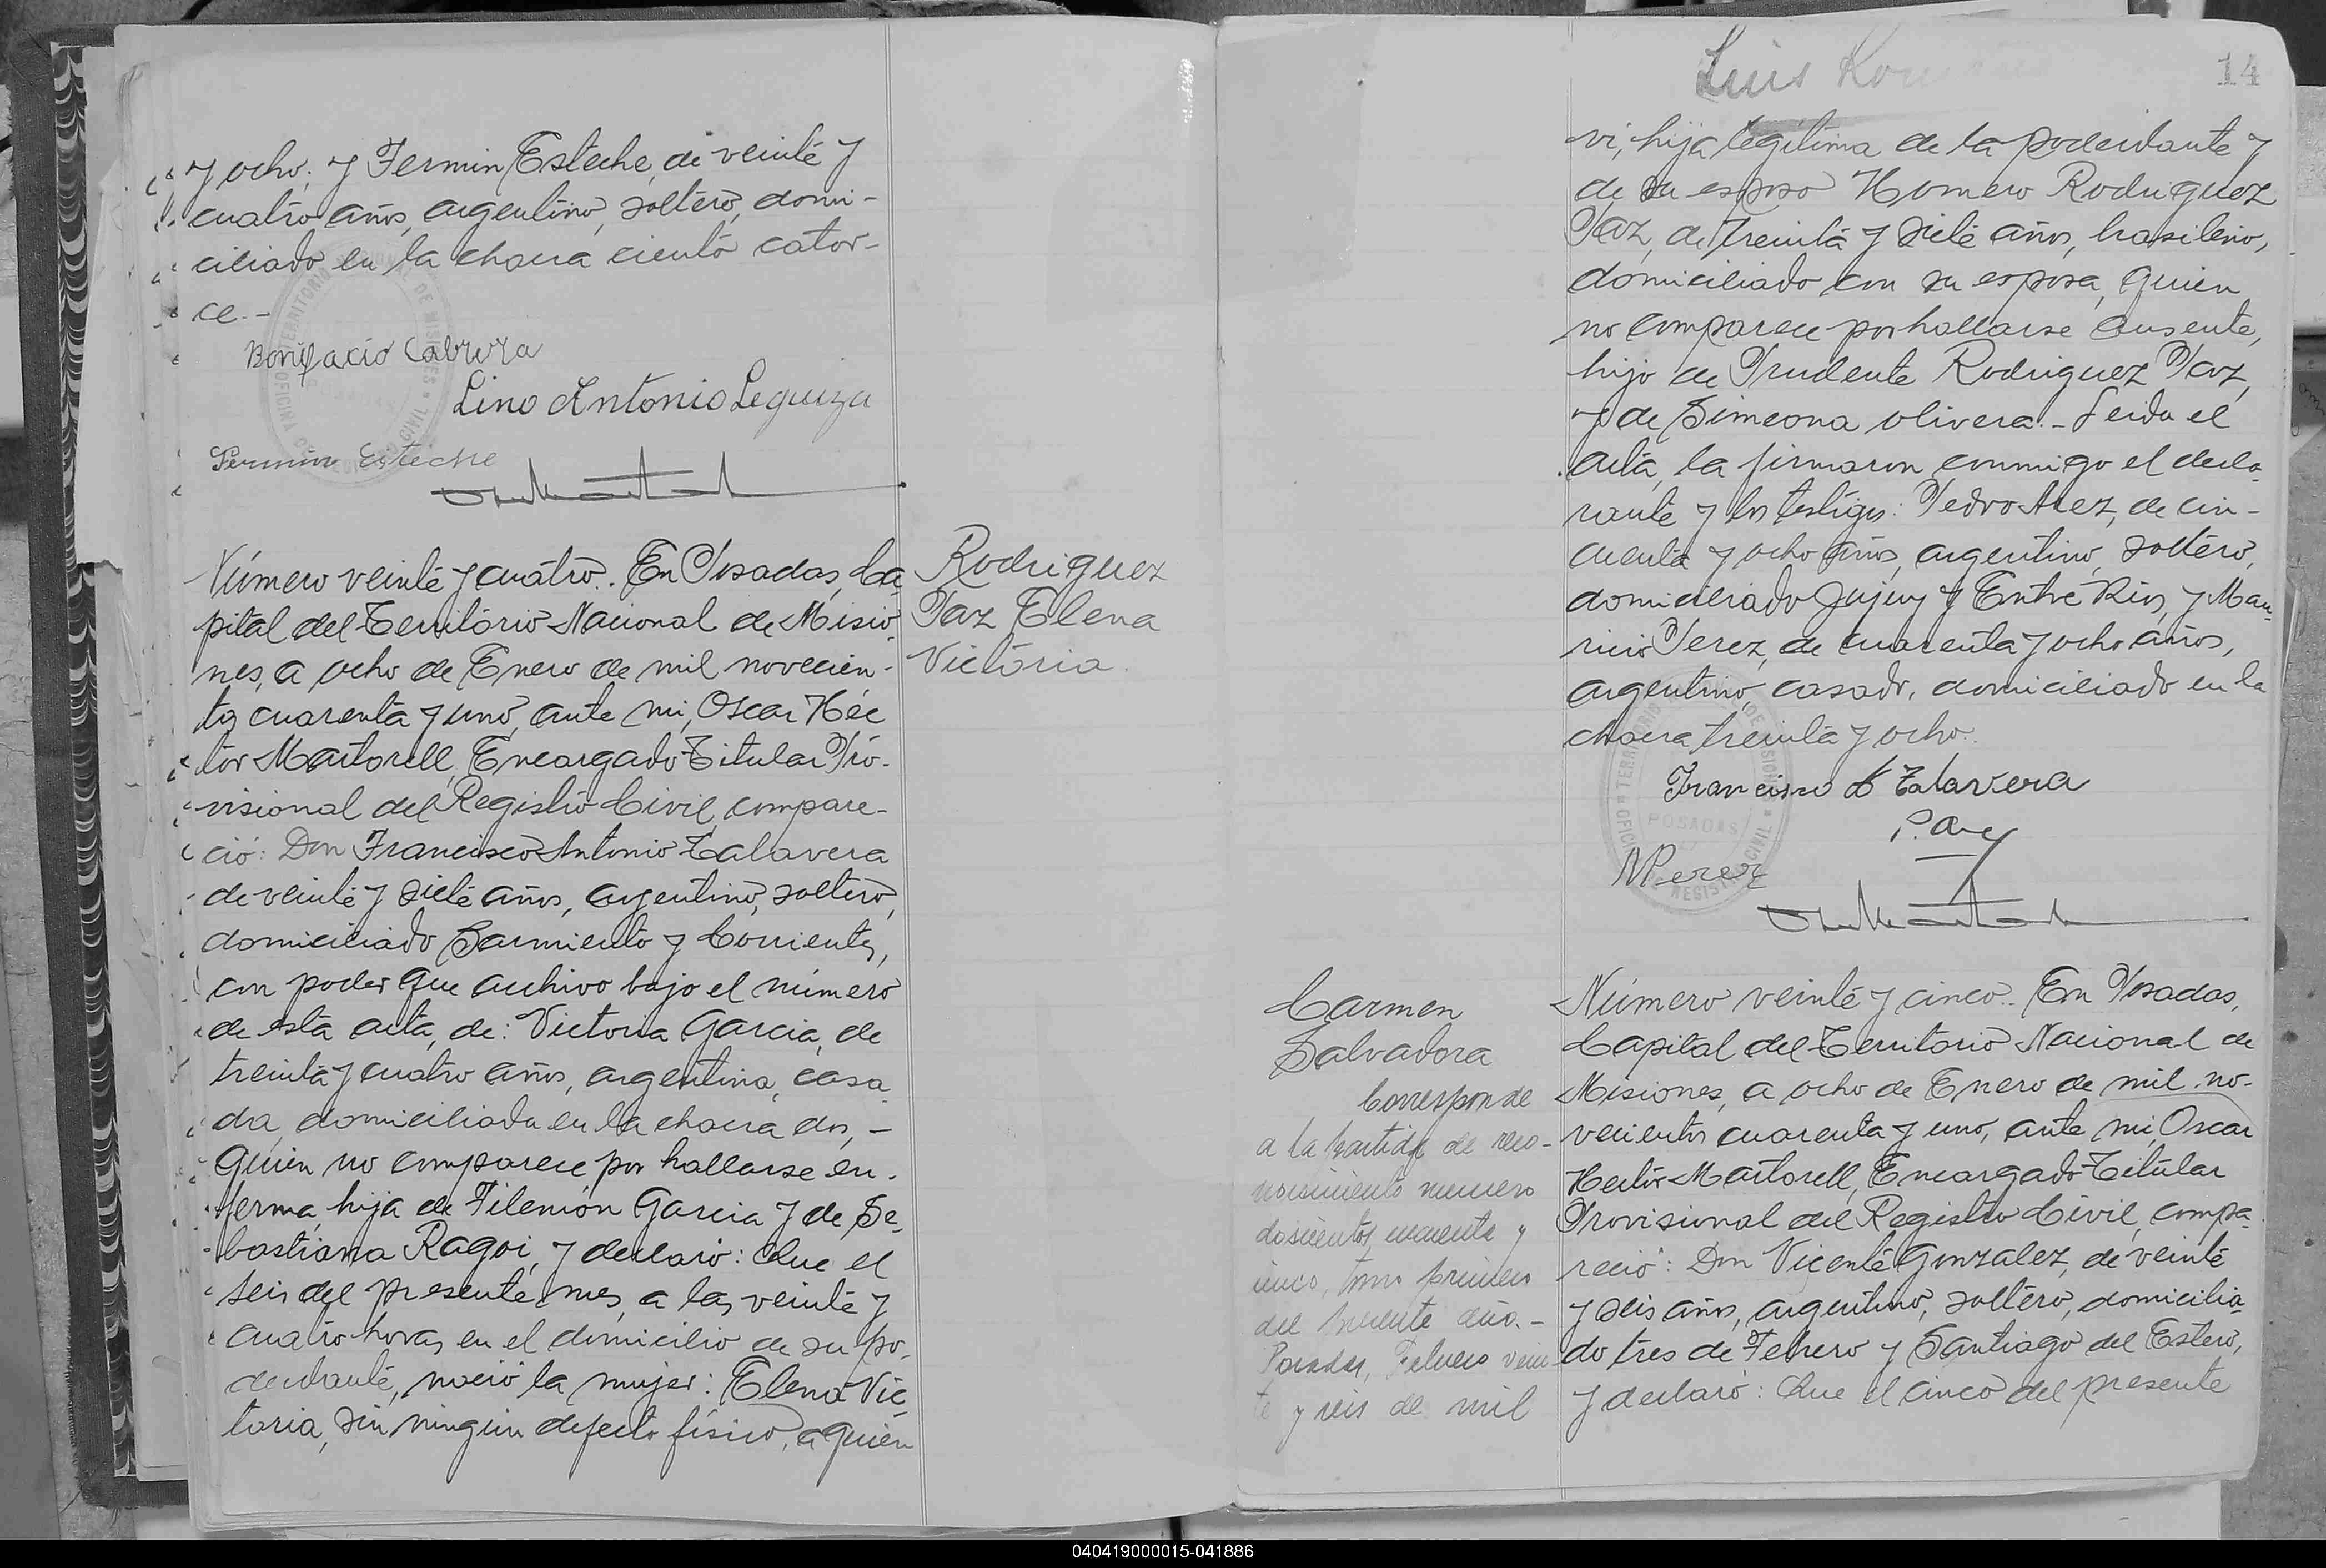 y ocho; y Fermin Esteche, de veinte y
cuatro años, argentino, soltero, domi-
ciliado en la chacra ciento cator-
ce.-
Bonifacio Cabrera
Lino Antonio Leguiza
Fermin Esteche
Número veinte y cuatro. En Posadas, Ca-
pital del Territorio Nacional de Misio-
nes, a ocho de Enero de mil novecien-
tos cuarenta y uno, ante mi, Oscar Héc
tor Martorell, Encargado Titular Pro-
visional del Registro Civil, compare-
ció: Don Francisco Antonio Talavera
de veinte y siete años, argentino, soltero,
domiciliado Sarmiento y Corrientes,
con poder que archivo bajo el número
de esta acta, de: Victoria Garcia, de
treinta y cuatro años, argentina, casa
da, domiciliada en la chacra dos, -
quien no comparece por hallarse en-
ferma, hija de Filemón Garcia y de Se-
bastiana Ragoi, y declaró: Que el
seis del presente mes, a las veinte y
cuatro horas, en el domicilio de su po-
derdante, nació la mujer: Elena Vic-
toria, sin ningun defecto físico, a quien
Rodriguez
Paz Elena
Victoria.
Luis
14
vi, hija legítima de la poderdante y
de su esposo Homero Rodriguez
Paz, de treinta y siete años, brasileño,
domiciliado con su esposa, quien
no comparece por hallarse ausente,
hijo de Prudente Rodriguez Paz,
y de Simeona Olivera.- Leida el
acta, la firmaron conmigo el decla-
rante y los testigos: Pedro Arez, de cin-
cuenta y ocho años, argentino, soltero,
domiciliado Jujuy y Entre Rios, y Mau-
ricio Perez, de cuarenta y ocho años,
argentino, casado, domiciliado en la
chacra treinta y ocho.
Francisco A Talavera
M Perez
Carmen
Salvadora
Corresponde
a la partida de reco-
nocimiento numero
doscientos cuarenta y
cinco, tomo primero
del presente año.-
Posadas, Febrero vein-
te y seis de mil
Número veinte y cinco. En Posadas,
Capital del Territorio Nacional de
Misiones, a ocho de Enero de mil no-
vecientos cuarenta y uno, ante mi, Oscar
Hector Martorell, Encargado Titular
Provisional del Registro Civil, compa-
reció: Don Vicente Gonzalez, de veinte
y seis años, argentino, soltero, domicilia-
do tres de Febrero y Santiago del Estero,
y declaró: Que el cinco del presente
040419000015-041886